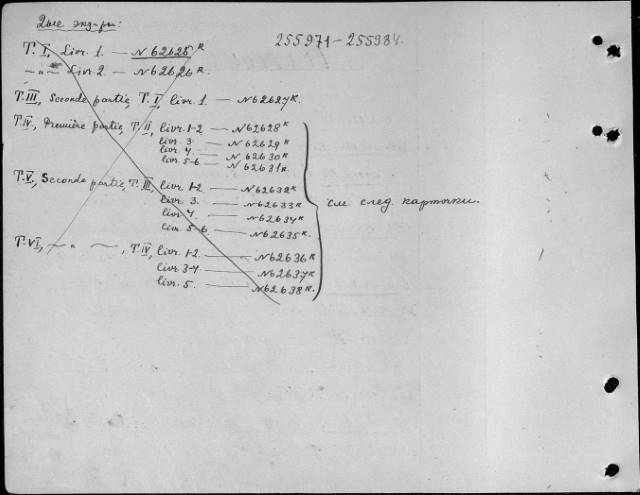 2ые экз-ры:
255971-255984.
T. I, Livr. 1. — N 62625 к
—〃— Livr. 2. — N 62626 к.
T. III, Seconde partie, T. I, livr. 1 — N 62627 к.
T. IV, Première partie, T. II, livr. 1-2 — N 62628 к
livr. 3 — N 62629 к
livr. 4. — N 62630 к
livr. 5-6 — N 62631 к
T. V, Seconde partie, T. III, livr. 1-2 — N 62632 к
livr. 3. — N 62633 к
livr. 4. — N 62634 к
livr. 5-6. — N 62635 к.
см след. карточки.
T. VI, —〃—, T. IV, livr. 1-2. — N 62636 к
livr. 3-4 — N 62637 к
livr. 5. — N 62638 к.